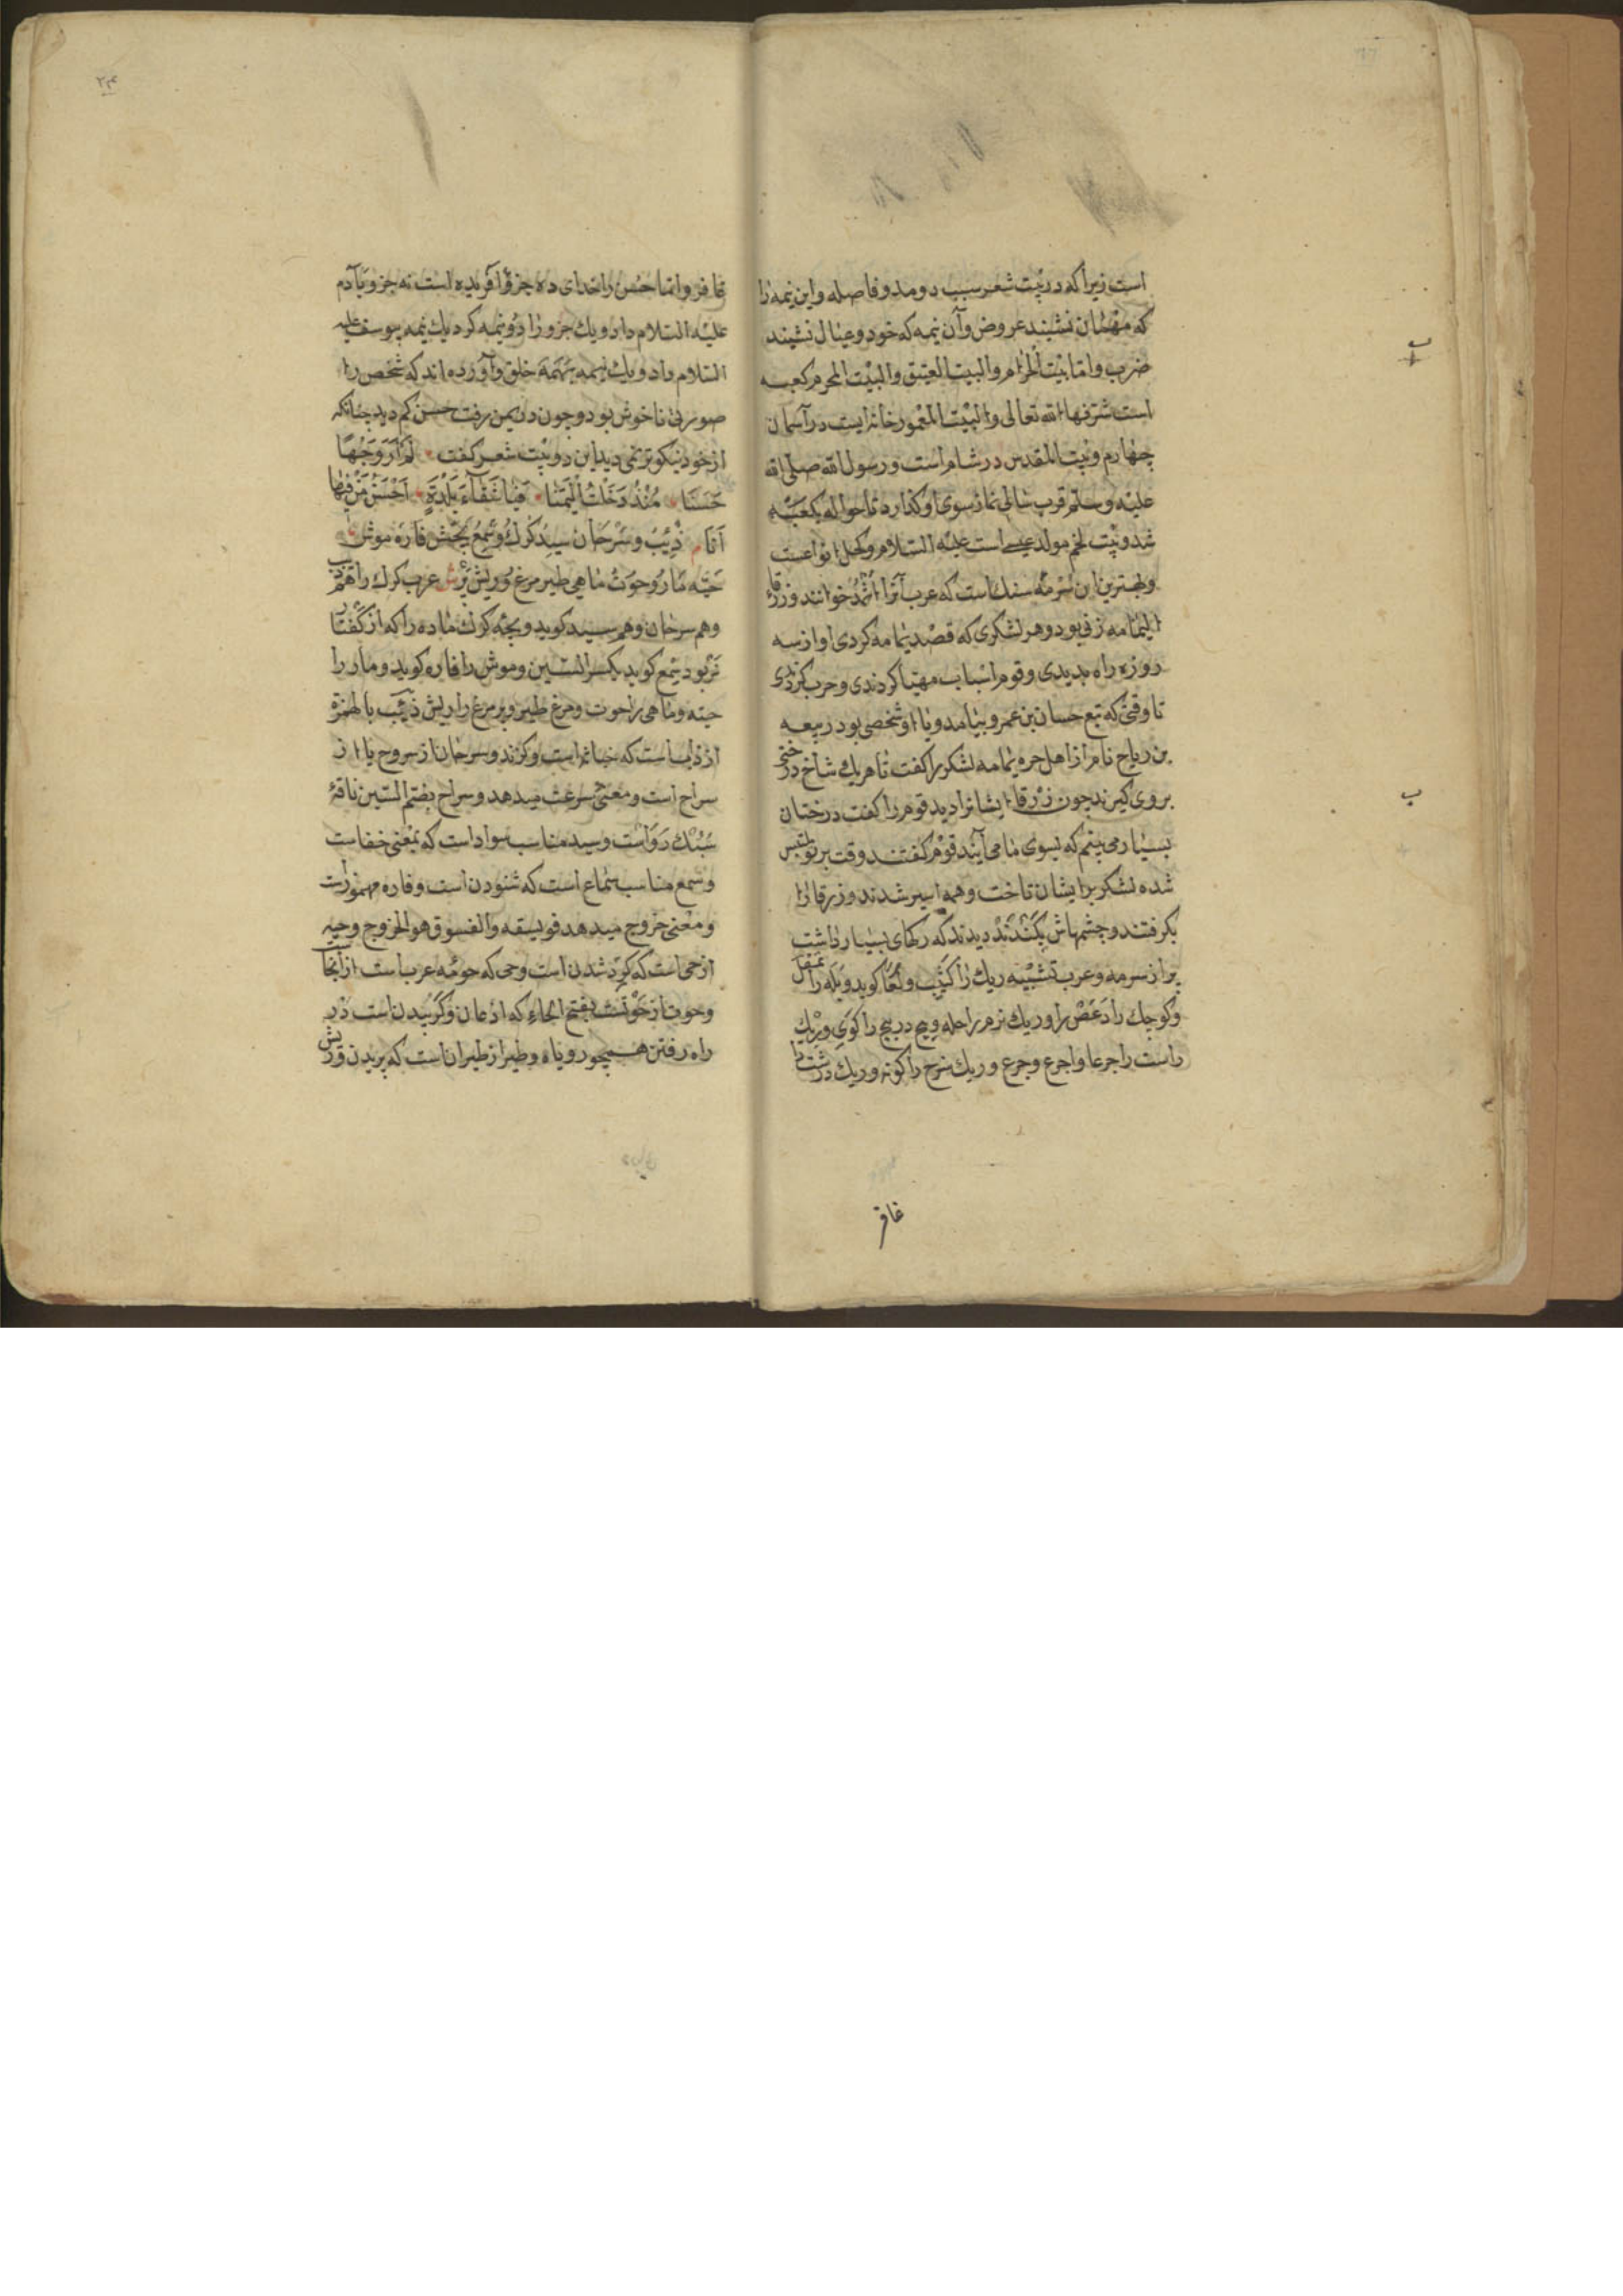 است زیرا که در بیت شعر سبب دو مد و فاصله و این نیمه را
که مهمان نشیند عروض و آن نیمه که خود و عیال نشیند
ضرب و اما بیت الحرام و البیت العتیق و البیت المحرم کعبه
است شرفها الله تعالی و البیت المعمور خانه ایست در آسمان
چهارم و بیت المقدس در شام است و رسول الله صلی الله
علیه و سلم قرب سالی نماز سوی او گذارد تا حواله بکعبه
شد و بیت لخم مولد عیسی است علیه السلام و کحل انواعست
و بهترین این سرمه سنک است که عرب آنرا اثمد خوانند و زرقا
الیمامه زنی بود و هر لشکری که قصد یمامه کردی او از سه
روزه راه بدیدی و قوم اسباب مهیا کردندی و حرب کردندی
تا وقتی که تبع حسان بن عمرو بیامد و با او شخصی بود ربیعه
بن ریاح نام از اهل حره یمامه لشکر را کفت تا هریک شاخ درختی
بر روی کیرند چون زرقا ایشانرا دید قوم را کفت درختان
بسیار می بینم که بسوی ما می آیند قوم کفتند وقت بر تو ملتبس
شده لشکر بر ایشان تاخت و همه اسیر شدند و زرقا را
بکرفتند و چشمهاش بکندند دیدند که رکهای بسیار داشت
پر از سرمه و عرب تشبینه ریک را کثیب و لعا کوید و تله را عقنقل
و کوچک را دعص را و ریک نرم را حله و پیچ در پیچ را کوی و ریک
راست را جرعا و اجرع و جرع و ریک سرخ را کونه و ریک درشت را
غافر
۲۴
غافر و اما حسن را خدای ده جزو آفریده است نه جزو بآدم
علیه السلام داد و یک جزو را دو نیمه کرد یک نیمه بیوسف علیه
السلام داد و یک نیمه بهمه خلق و آورده اند که شخص را
صورتی ناخوش بود و چون در یمن رفت حسن کم دید چنانکه
از خود نیکوتر نمی دید این دو بیت شعر کفت لم ار وجها
حسنا منذ دخلت الیمنا فیا شقاء بلدة احسن من فیها
انا ذئب و سرحان سید کرک و سمع بچش فاره موش
حیه مار و حوت ماهی طیر مرغ و ریش پرش عرب کرک را هم ذیب
و هم سرحان و هم سید کوید و بچه کرک ماده را که از کفتار
نر بود سمع کوید بکسر السین و موش را فاره کوید و مار را
حیه و ماهی را حوت و مرغ طیر و پر مرغ را ریش ذئب بالهمزة
از ذاب است که خیانه است و کزند و سرحان از سروح یا از
سراح است و معنی سرعت میدهد و سراح بضم السین ناقه
سبک رو است و سید مناسب سواد است که بمعنی خفاست
و سمع مناسب سماع است که شنودن است و فاره مهموز است
و معنی خروج میدهد فویسقه و الفسوق هو الخروج و حیه
از حی است که کرد شدن است و حی که حومه عرب است از آنجا
و حوت از حوت است بفتح الحاء که اذعان و کردیدن است در
راه رفتن همچو روباه و طیر از طیران است که پریدن و ریش